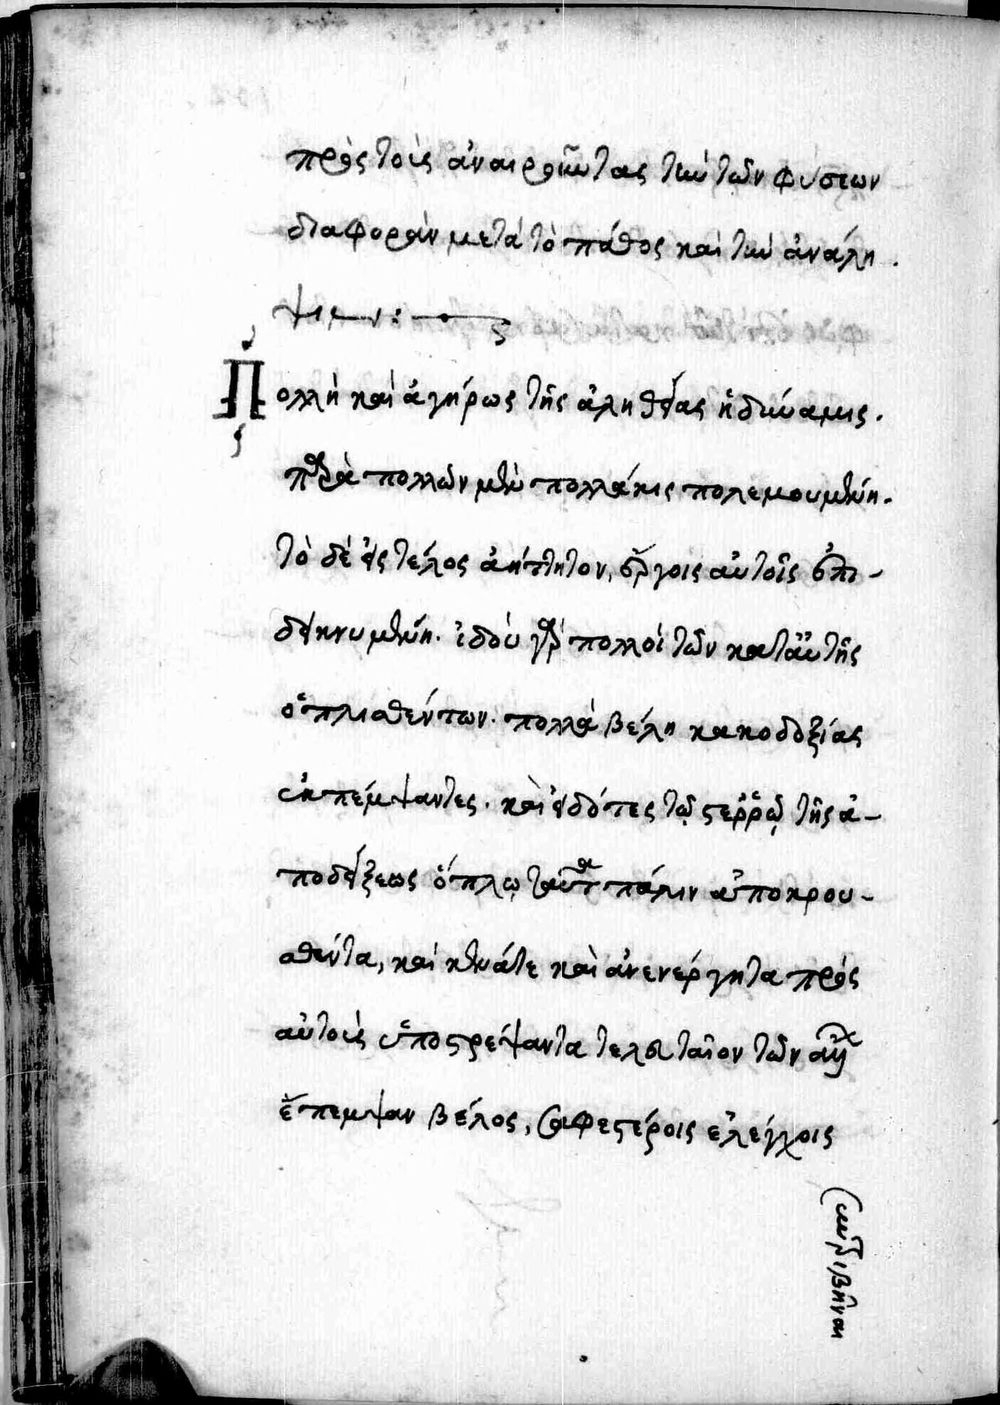 πρὸς τοὺς ἀναιροῦντας τὴν τῶν φύσεων
διαφορὰν μετὰ τὸ πάθος καὶ τὴν ἀνάλη
ψιν:
Πολλὴ καὶ ἀγήρως τῆς ἀληθείας ἡ δύναμις.
παρὰ πολλῶν μὲν πολλάκις πολεμουμένη.
τὸ δὲ εἰς τέλος ἀήττητον, ἔργοις αὐτοῖς ἐπι-
δεικνυμένη. ἰδοὺ γὰρ πολλοὶ τῶν κατ' αὐτῆς
ὁπλισθέντων. πολλὰ βέλη κακοδοξίας
ἐκπέμψαντες. καὶ ἰδόντες τῷ στερρῷ τῆς ἀ-
ποδείξεως ὅπλῳ ταῦτα πάλιν ἀποκρου-
σθέντα, καὶ κενά τε καὶ ἀνενέργητα πρὸς
αὐτοὺς ὑποστρέψαντα τελευταῖον τῶν
ἔπεμψαν βέλος, σαφεστέροις ἐλέγχοις
συντριβῆναι